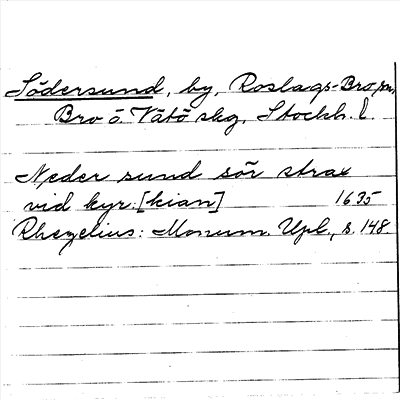 Södersund, by, Roslags-Bro sn,
Bro o. Vätö skg, Stockh. l.
Neder sund sör strax
vid kyr:[kian] 1635
Rhezelius: Monum. Upl., s. 148